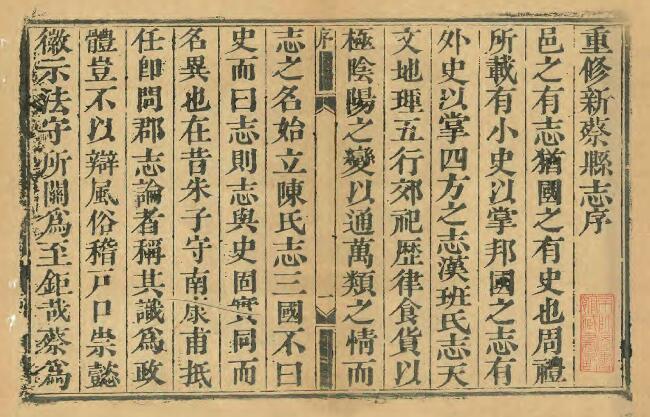 重修新蔡縣志序
邑之有志猶國之有史也周禮
所載有小史以掌邦國之志有
外史以掌四方之志漢班氏志天
文地理五行郊祀歷律食貨以
極陰陽之變以通萬類之情而
序 一
志之名始立陳氏志三國不曰
史而曰志則志與史固實同而
名異也在昔朱子守南康甫抵
任即問郡志論者稱其識為政
體豈不以辯風俗稽戶口崇懿
徽示法守所關爲至鉅哉蔡爲